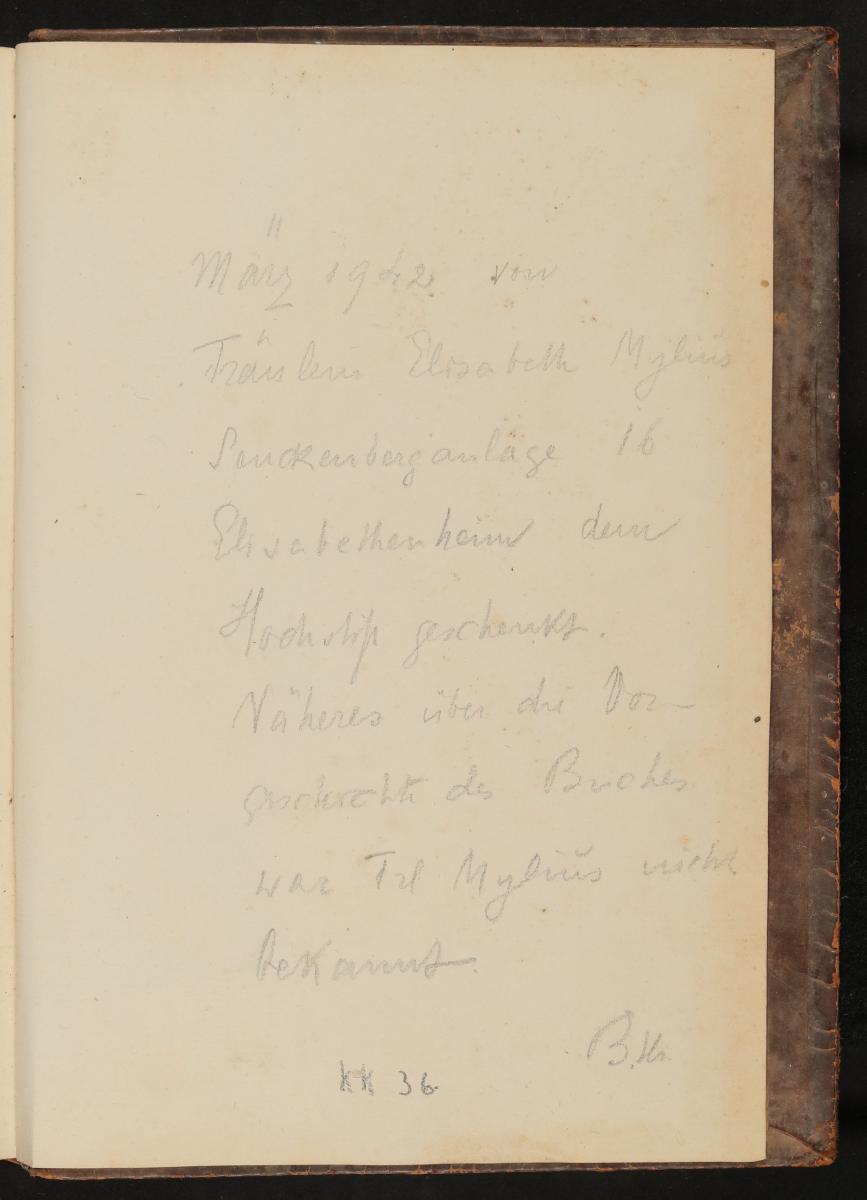 März 1942 von
Fräulein Elisabeth Mylius
Senckenberganlage 16
Elisabethenheim dem
Hochstift geschenkt.
Näheres über die Vor-
geschichte des Buches
war Frl Mylius nicht
bekannt.
B.
KK 36